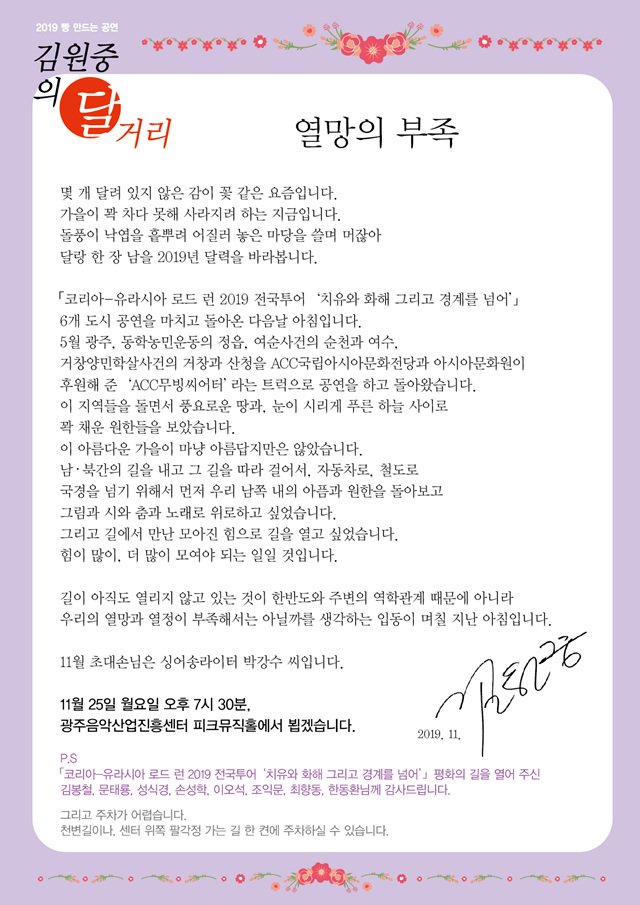 2019 빵 만드는 공연
김원중
의 달
거리
열망의 부족
몇 개 달려 있지 않은 감이 꽃 같은 요즘입니다.
가을이 꽉 차다 못해 사라지려 하는 지금입니다.
돌풍이 낙엽을 흩뿌려 어질러 놓은 마당을 쓸며 머잖아
달랑 한 장 남을 2019년 달력을 바라봅니다.
「코리아-유라시아 로드 런 2019 전국투어 ‘치유와 화해 그리고 경계를 넘어’」
6개 도시 공연을 마치고 돌아온 다음날 아침입니다.
5월 광주, 동학농민운동의 정읍, 여순사건의 순천과 여수,
거창양민학살사건의 거창과 산청을 ACC국립아시아문화전당과 아시아문화원이
후원해 준 ‘ACC무빙씨어터’ 라는 트럭으로 공연을 하고 돌아왔습니다.
이 지역들을 돌면서 풍요로운 땅과, 눈이 시리게 푸른 하늘 사이로
꽉 채운 원한들을 보았습니다.
이 아름다운 가을이 마냥 아름답지만은 않았습니다.
남·북간의 길을 내고 그 길을 따라 걸어서, 자동차로, 철도로
국경을 넘기 위해서 먼저 우리 남쪽 내의 아픔과 원한을 돌아보고
그림과 시와 춤과 노래로 위로하고 싶었습니다.
그리고 길에서 만난 모아진 힘으로 길을 열고 싶었습니다.
힘이 많이, 더 많이 모여야 되는 일일 것입니다.
길이 아직도 열리지 않고 있는 것이 한반도와 주변의 역학관계 때문에 아니라
우리의 열망과 열정이 부족해서는 아닐까를 생각하는 입동이 며칠 지난 아침입니다.
11월 초대손님은 싱어송라이터 박강수 씨입니다.
11월 25일 월요일 오후 7시 30분,
광주음악산업진흥센터 피크뮤직홀에서 뵙겠습니다.
김원중
2019. 11.
P.S
「코리아-유라시아 로드 런 2019 전국투어 ‘치유와 화해 그리고 경계를 넘어’」 평화의 길을 열어 주신
김봉철, 문태룡, 성식경, 손성학, 이오석, 조익문, 최향동, 한동환님께 감사드립니다.
그리고 주차가 어렵습니다.
천변길이나, 센터 위쪽 팔각정 가는 길 한 켠에 주차하실 수 있습니다.